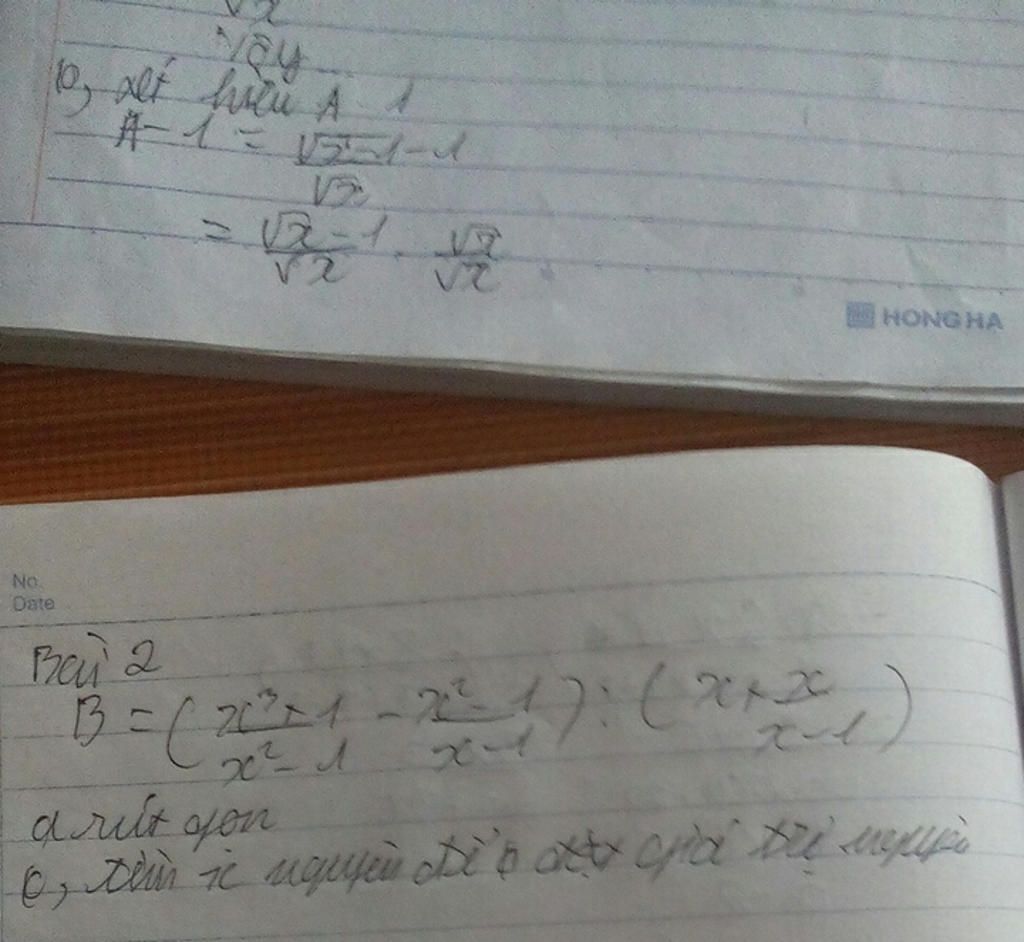 √x
Vậy...
b, xét hiệu A - 1
A - 1 = √x - 1 - 1
√x
= √x - 1 . √x
√x √x
HONG HA
No.
Date
Bài 2
B = ( x³ + 1 - x² - 1 ) : ( x + x )
x² - 1 x - 1 x - 1
a rút gọn
b, tìm x nguyên để B đạt giá trị nguyên